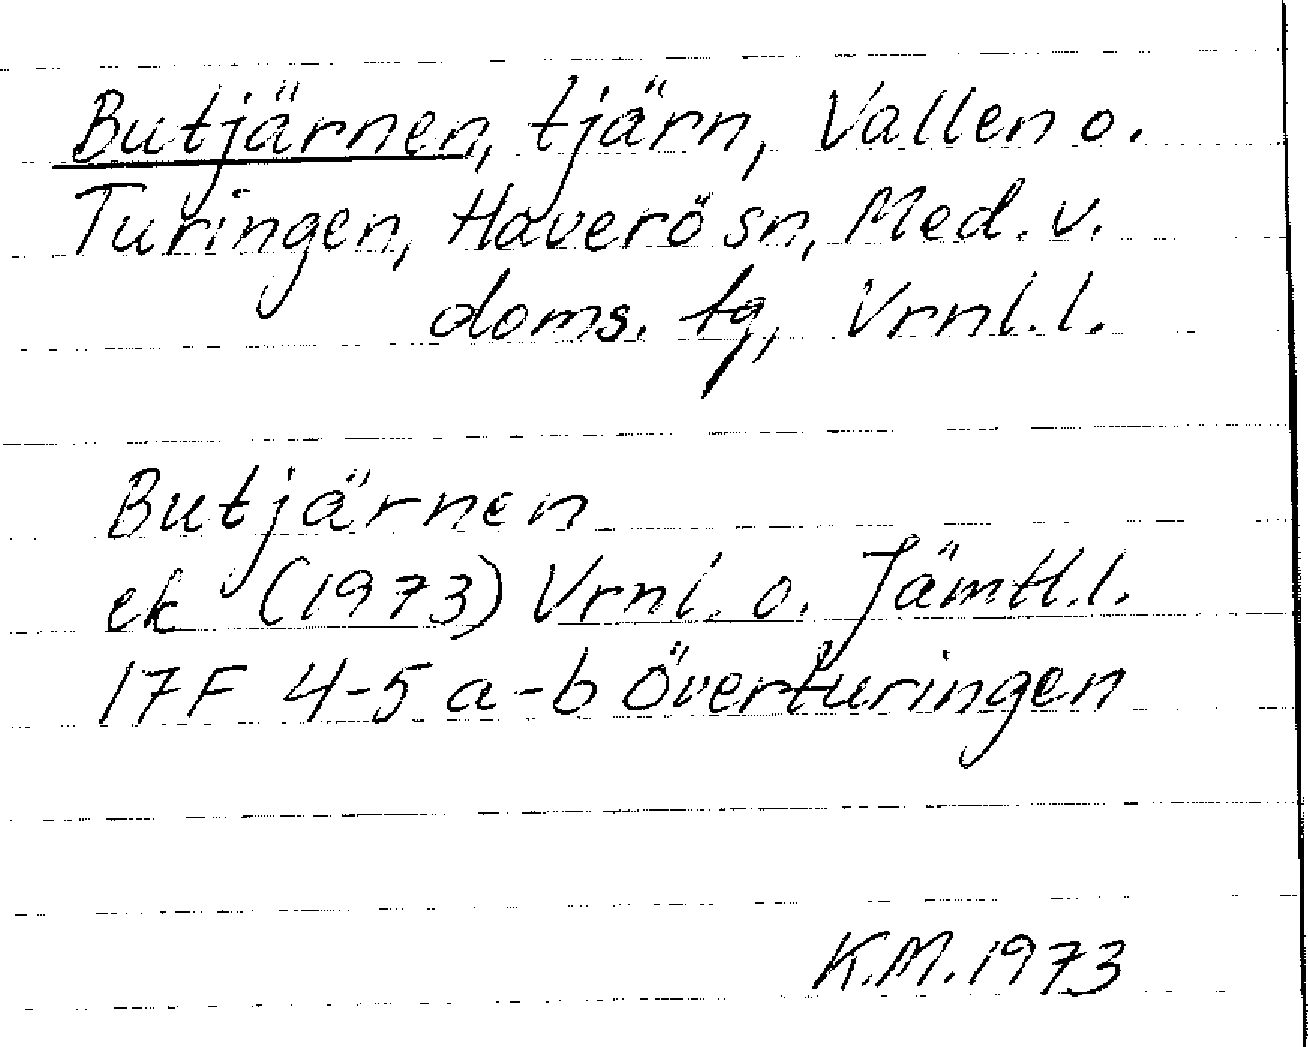 Butjärnen, tjärn, Vallen o.
Turingen, Haverö sn, Med. v.
doms. tg, Vrnl. l.
Butjärnen
ek (1973) Vrnl. o. Jämtl. l.
17F 4-5 a-b Överturingen
K.M. 1973